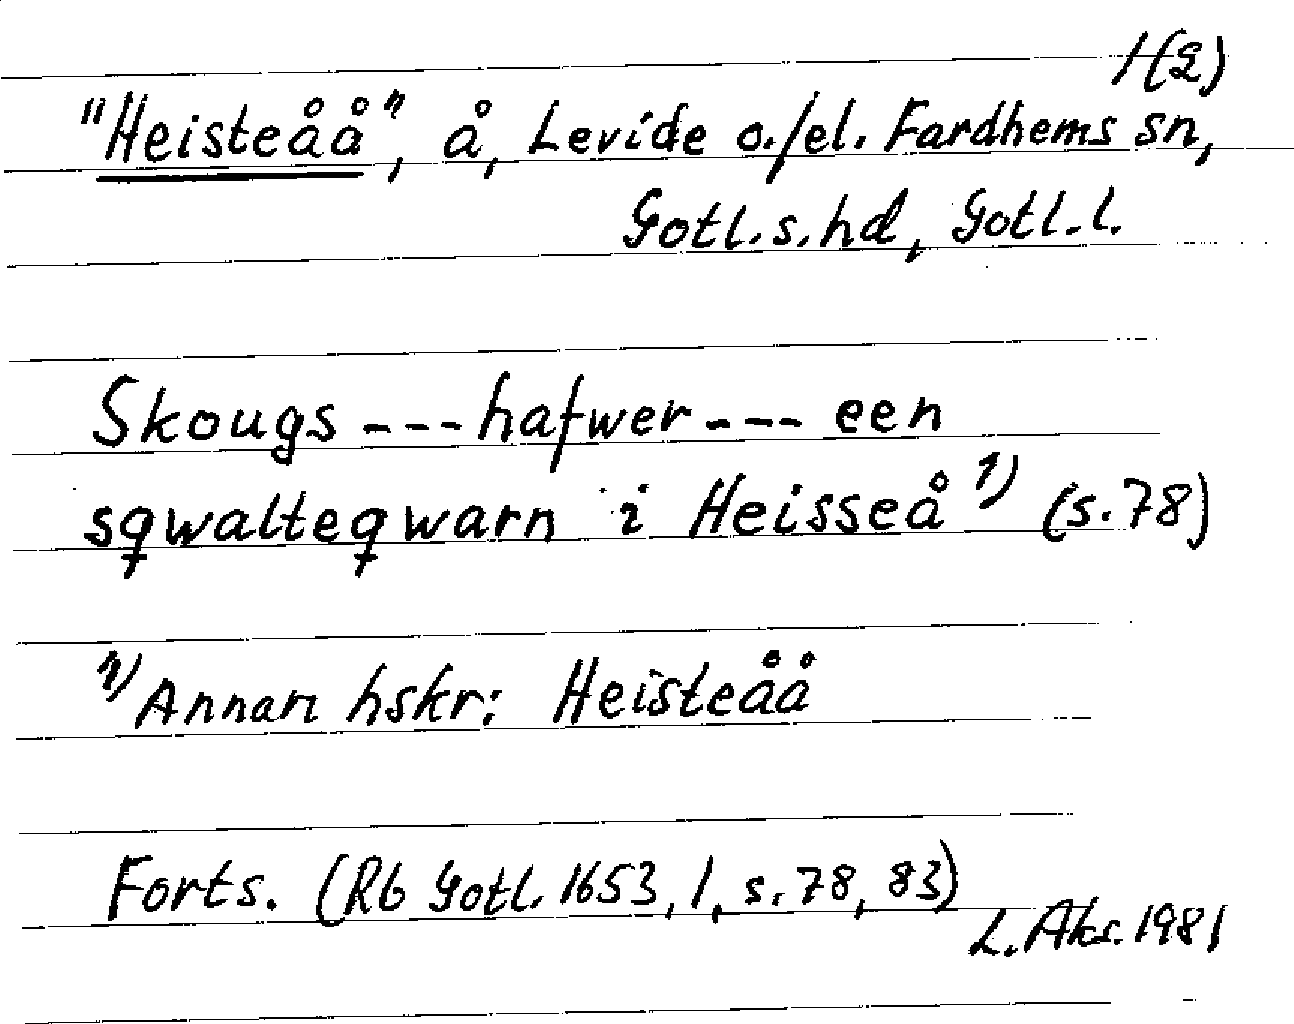 1(2)
"Heisteåå", å, Levide o./el. Fardhems sn,
Gotl.s.hd, Gotl.l.
Skougs --- hafwer --- een
sqwalteqwarn i Heisseå 1) (s.78)
1) Annan hskr: Heisteåå
Forts. (Rb Gotl. 1653, 1, s. 78, 83)
L. Aks. 1981